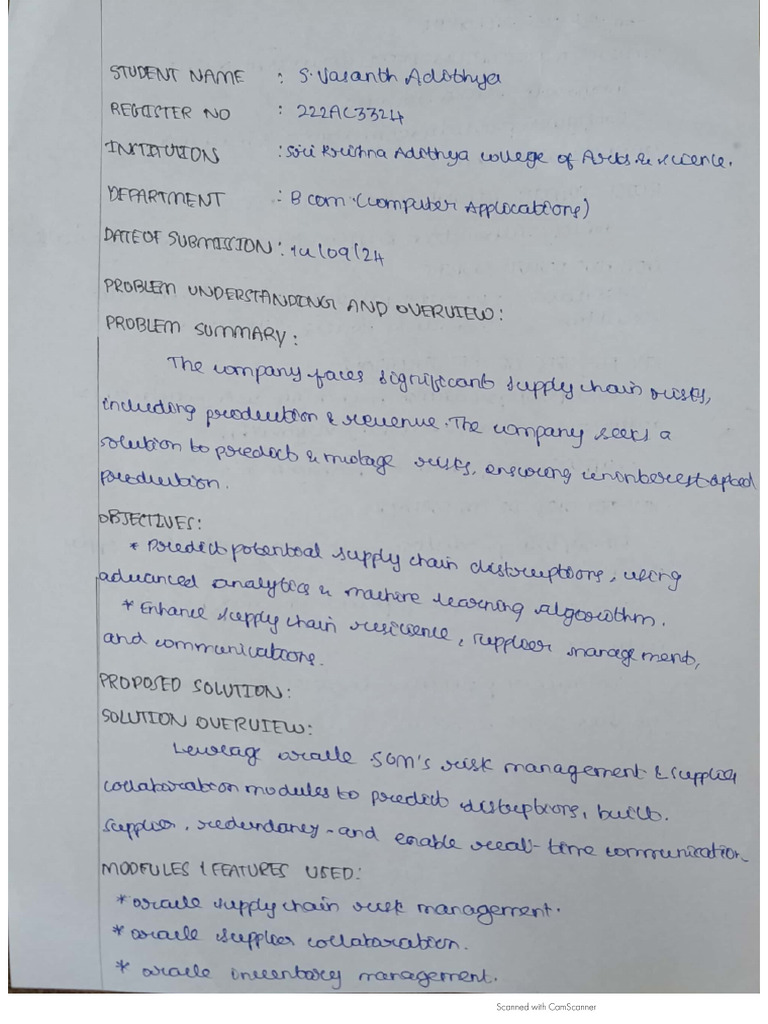 STUDENT NAME : S. Vasanth Adithya
REGISTER NO : 222AC3324
INTITUTION : Sri Krishna Adithya college of Arts & science.
DEPARTMENT : B com (Computer Applications)
DATE OF SUBMISSION : /09/24
PROBLEM UNDERSTANDING AND OVERVIEW :
PROBLEM SUMMARY :
The company faces significant supply chain risks,
including production & revenue. The company seeks a
solution to predict & mitage risks, ensuring
production.
OBJECTIVES :
* Predict potential supply chain distruptions, using
advanced analytics & machine learning algorithm.
* Enhance supply chain resicience, supplier management,
and communications.
PROPOSED SOLUTION :
SOLUTION OVERVIEW :
Leverag oracle SCM's risk management & supplier
collabaration modules to predict distruptions, built.
supplier, redundancy - and enable real-time communication
MODFULES & FEATURES USED :
* oracle supply chain risk management.
* oracle supplier collabaration.
* oracle inventory management.
Scanned with CamScanner